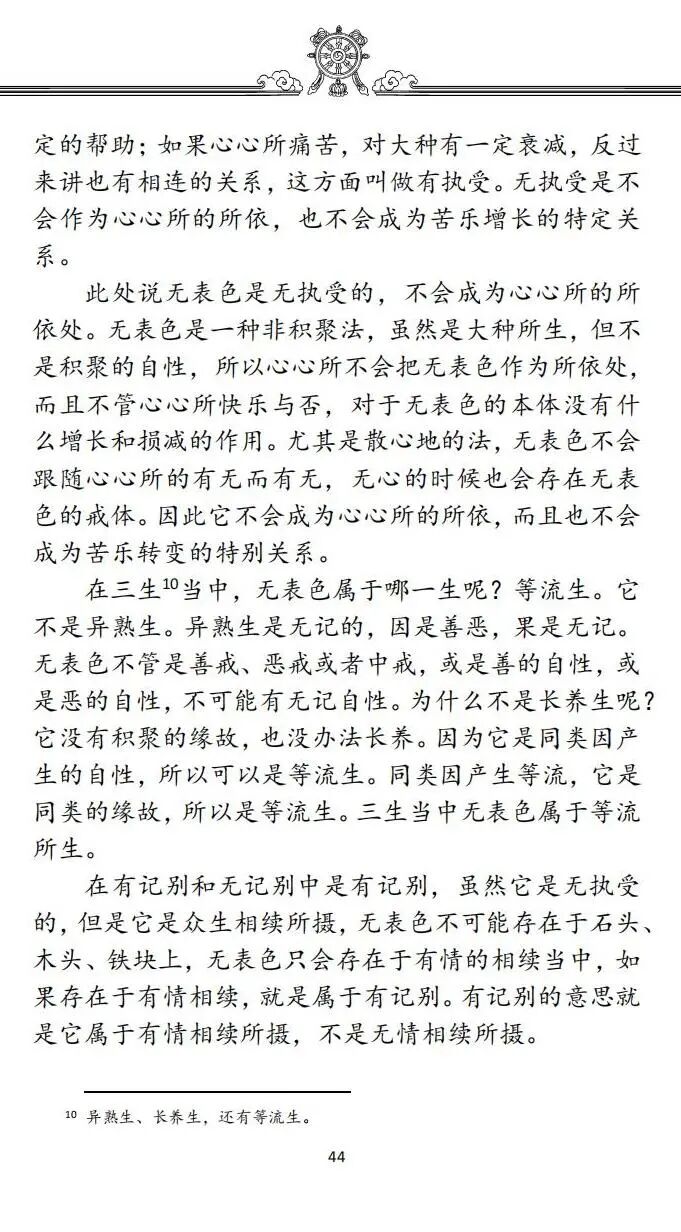 定的帮助；如果心心所痛苦，对大种有一定衰减，反过
来讲也有相连的关系，这方面叫做有执受。无执受是不
会作为心心所的所依，也不会成为苦乐增长的特定关
系。
此处说无表色是无执受的，不会成为心心所的所
依处。无表色是一种非积聚法，虽然是大种所生，但不
是积聚的自性，所以心心所不会把无表色作为所依处，
而且不管心心所快乐与否，对于无表色的本体没有什
么增长和损减的作用。尤其是散心地的法，无表色不会
跟随心心所的有无而有无，无心的时候也会存在无表
色的戒体。因此它不会成为心心所的所依，而且也不会
成为苦乐转变的特别关系。
在三生10当中，无表色属于哪一生呢？等流生。它
不是异熟生。异熟生是无记的，因是善恶，果是无记。
无表色不管是善戒、恶戒或者中戒，或是善的自性，或
是恶的自性，不可能有无记自性。为什么不是长养生呢？
它没有积聚的缘故，也没办法长养。因为它是同类因产
生的自性，所以可以是等流生。同类因产生等流，它是
同类的缘故，所以是等流生。三生当中无表色属于等流
所生。
在有记别和无记别中是有记别，虽然它是无执受
的，但是它是众生相续所摄，无表色不可能存在于石头、
木头、铁块上，无表色只会存在于有情的相续当中，如
果存在于有情相续，就是属于有记别。有记别的意思就
是它属于有情相续所摄，不是无情相续所摄。
10 异熟生、长养生，还有等流生。
44